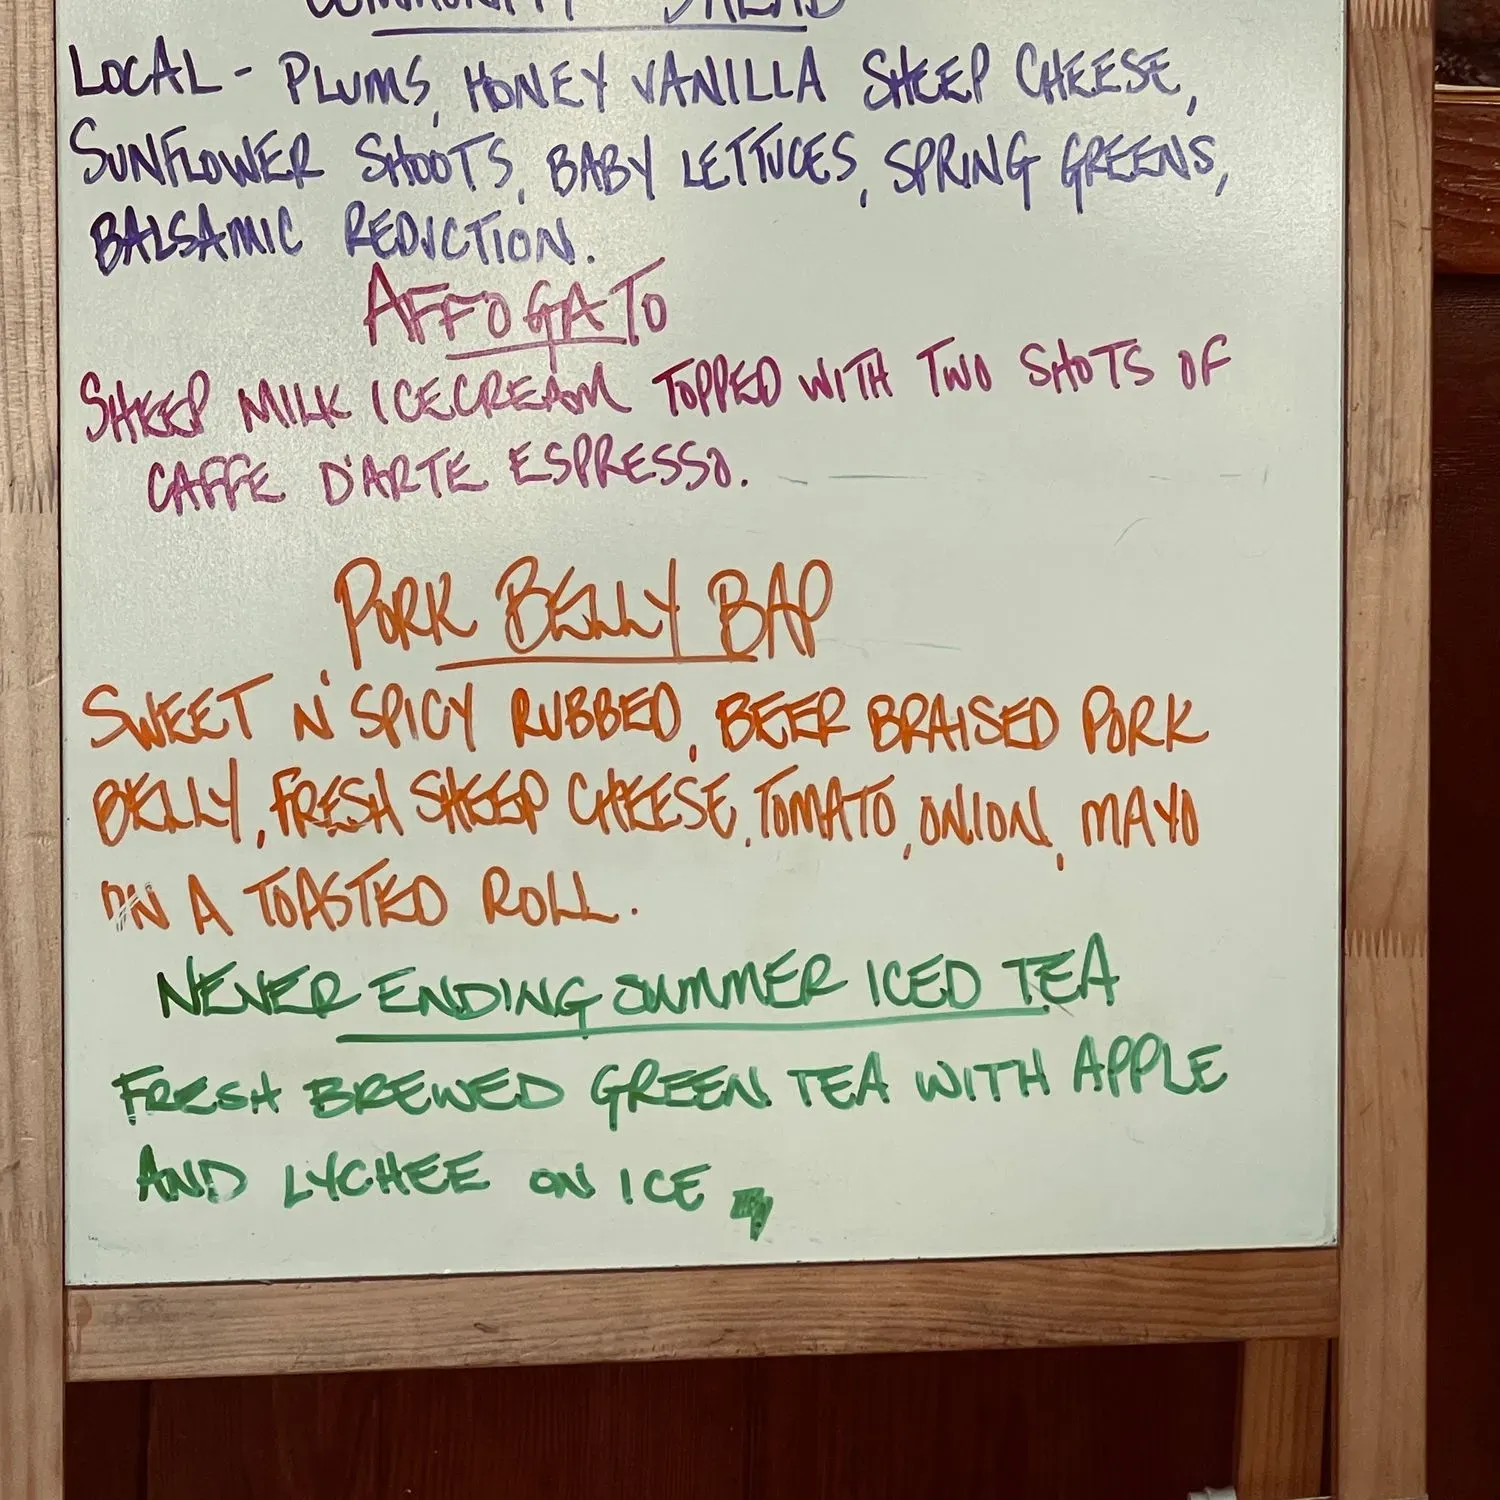 COMMUNITY SALAD
LOCAL - PLUMS, HONEY VANILLA SHEEP CHEESE,
SUNFLOWER SHOOTS, BABY LETTUCES, SPRING GREENS,
BALSAMIC REDUCTION.
AFFOGATO
SHEEP MILK ICECREAM TOPPED WITH TWO SHOTS OF
CAFFE D'ARTE ESPRESSO.
PORK BELLY BAP
SWEET N' SPICY RUBBED, BEER BRAISED PORK
BELLY, FRESH SHEEP CHEESE, TOMATO, ONION, MAYO
ON A TOASTED ROLL.
NEVER ENDING SUMMER ICED TEA
FRESH BREWED GREEN TEA WITH APPLE
AND LYCHEE ON ICE